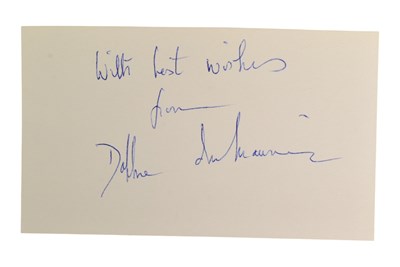 With best wishes
from
Daphne du Maurier